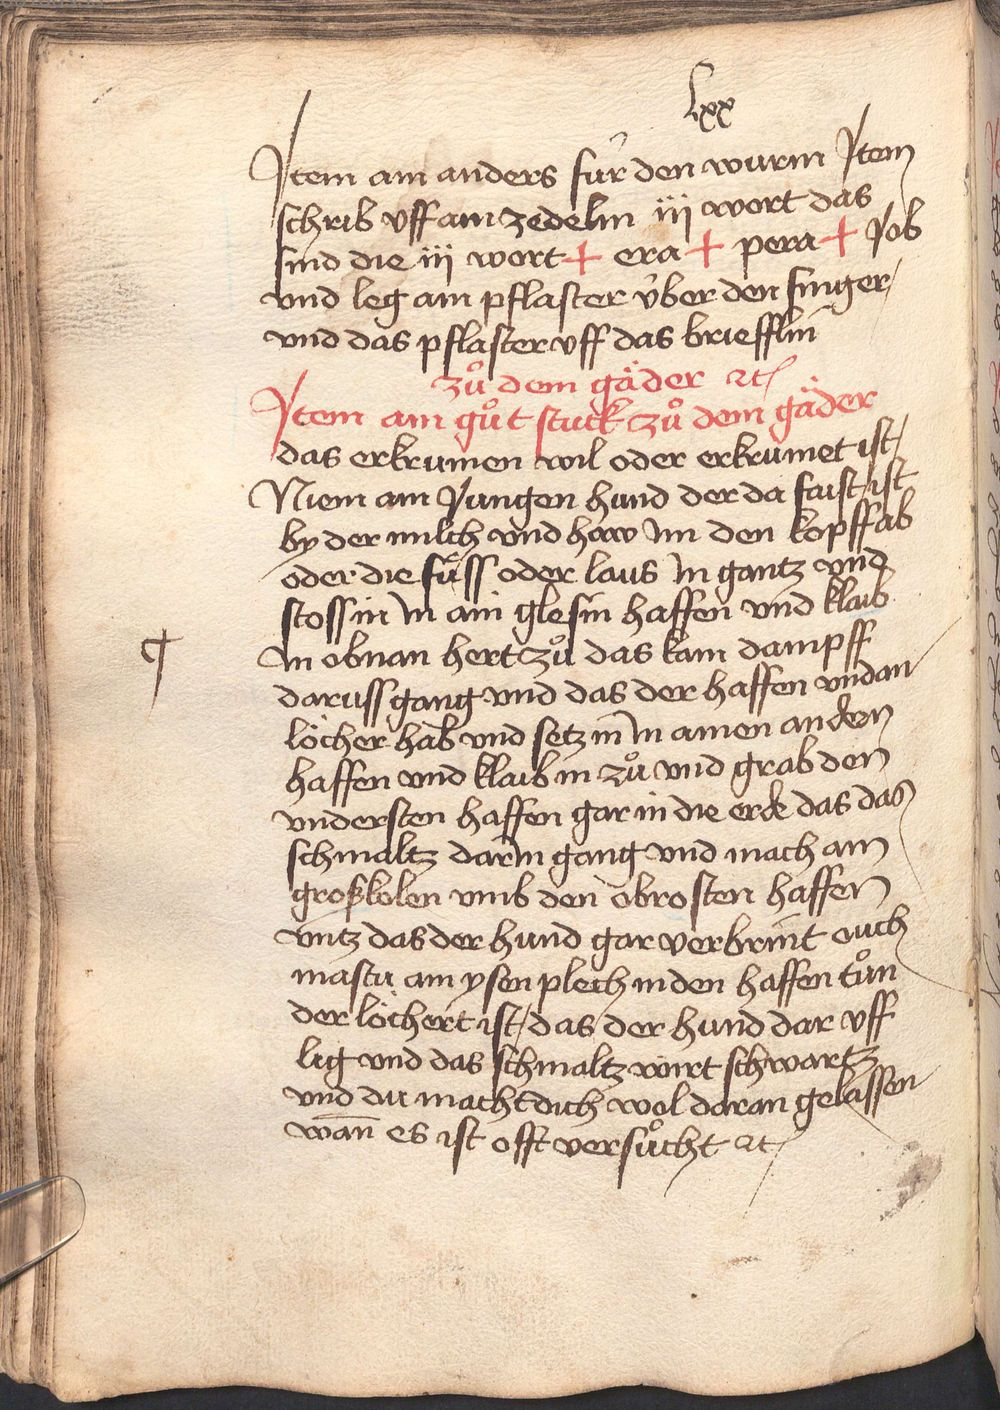 lxx
Jtem ain anders für den wurm Jtem
schrib vff ain zedelin iij wort das
sind die iij wort + era + pera + Job
vnd leg ain pflaster v̈ber den finger
vnd das pflaster vff das briefflin
zů dem gäder ꝛc
Jtem ain gůt stuck zů dem gäder
das erkrumen wil oder erkrumet ist
Niem ain Jungen hund der da faist ist
by der milch vnd how im den kopff ab
oder die füss oder laus in gantz vnd
stoss in in ain glesin haffen vnd klaib
in obnan hert zů das kain dampff
daruss gang vnd das der haffen vndan
löcher hab vnd setz in in ainen andern
haffen vnd klaib in zů vnd grab den
vndersten haffen gar in die erde das das
schmaltz darin gang vnd mach ain
groß kolen vmb den obrosten haffen
vntz das der hund gar verbrint ouch
mastu ain ysen plech in den haffen tůn
der löchert ist das der hund dar vff
lig vnd das schmaltz wirt schwartz
vnd du machst dich wol daran gelassen
wan̄ es ist offt versůcht ꝛc